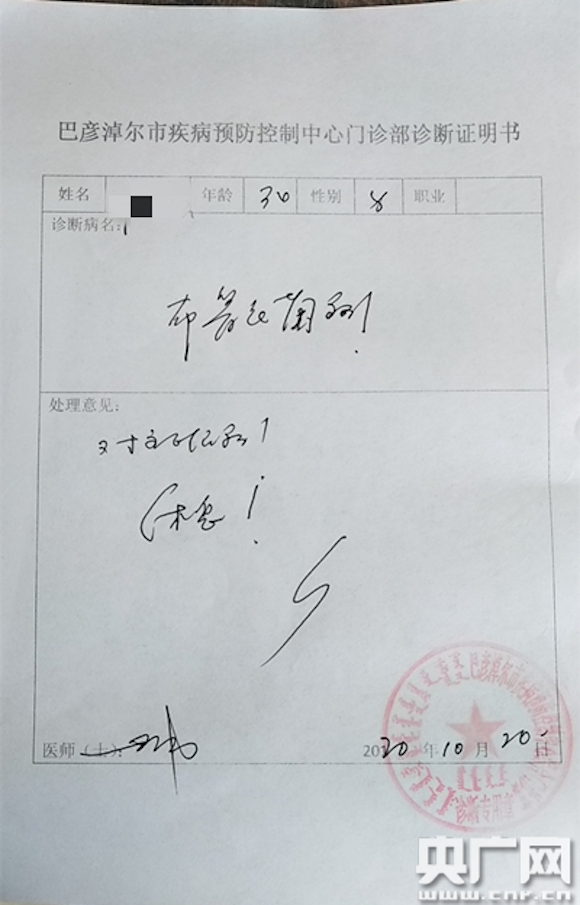 巴彦淖尔市疾病预防控制中心门诊部诊断证明书
姓名 年龄 30 性别 职业
诊断病名:
布鲁氏菌病!
处理意见:
对症治疗!
休息!
医师(士): 2020年10月20日
诊断专用章
央广网
www.cnr.cn